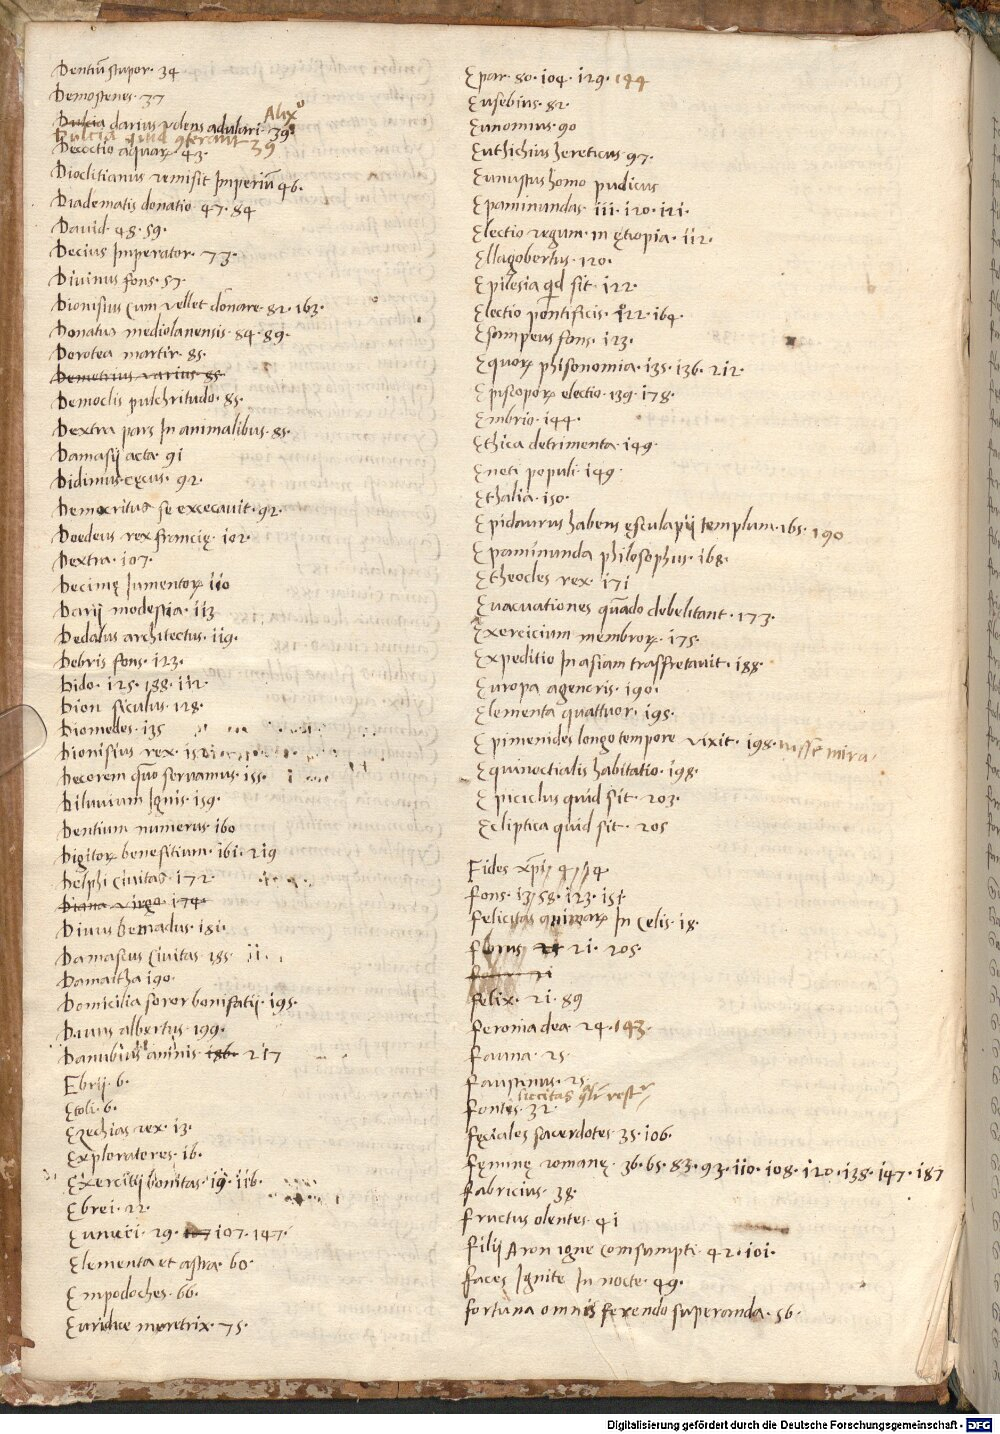 Dentiũ stupor. 34
Demostenes. 37
Alixº
Dulcia darius volens adulari. 39
Dulcia quid 39
Decoctio aquarꝝ 43.
Dioclitianus remisit Imperiũ 46.
Diadematis donatio 47. 84
Dauid. 48. 59.
Decius Imperator. 73.
Diuinus fons. 57.
Dionisius cum vellet donare. 82. 163.
Donatus mediolanensis 84. 89.
Dorotea martir. 85.
Demetrius varius 85.
Democlis pulchritudo. 85.
Dextra pars In animalibus. 85.
Damasij acta. 91
Didimus cęcus. 92.
Democritus se excecauit. 92.
Doedeus rex francię. 102.
Dextra. 107.
Decimę Iumentorꝝ 110
Darij modestia. 113
Dedalus architectus. 119.
Debris fons. 123.
Dido. 125. 188. 112
Dion siculus. 128.
Diomedes. 135
Dionisius rex.
Decorem quõ seruamus. 155.
Diluuium Ignis. 159.
Dentium numerus. 160
Digitorꝝ benefitium. 161. 219
Delphi ciuitas. 172.
Diana virgo. 174.
Diuus bernadus. 181.
Damascus ciuitas. 185.
Damartha 190.
Domicilia soror bonifatij. 195.
Diuus albertus. 199.
Danubius amnis 186. 217
Ebrij. 6.
Etoli. 6.
Ezechias rex. 13.
Exploratores. 16.
Exercitij bonitas. 19. 116.
Ebrei. 22.
Eunuci. 29. 107 107. 147.
Elementa et astra. 60.
Empodoches. 66.
Euridice meretrix. 75.
Epar. 80. 104. 129. 144
Eusebius. 82.
Eunomius. 90
Euthichius hereticus. 97.
Eunustus homo pudicus
Epaminundas. 111. 120. 121.
Electio regum. in ętiopia. 112.
Ellagobertus. 120.
Epilesia qd sit. 122.
Electio pontificis. 122. 164.
Esampeus fons. 123.
Equorꝝ phisonomia. 135. 136. 212.
Episcoporꝝ electio. 139. 178.
Embrio. 144.
Ethica detrimenta. 149.
Eneti populi. 149.
Ethalia. 150.
Epidaurus habens ęsculapij templum. 165. 190
Epaminunda philosophus. 168.
Etheocles rex. 171
Euacuationes quãdo debelitant. 173.
Exercicium membrorꝝ. 175.
Expeditio In asiam traffretauit. 188.
Europa agenoris. 190.
Elementa quattuor. 195.
Epimenides longo tempore vixit. 198. mira.
Equinoctialis habitatio. 198.
Epiciclus quid sit. 203.
Ecliptica quid sit. 205
Fides xp̃i
Fons. 13. 58. 123. 151.
Felicitas animarꝝ In celis. 18.
21. 205.
21
Felix. 21. 89
Feronia dea. 24. 143.
Fauna. 25.
Faustinus. 25.
siccitas
Fontes. 32.
Fęciales sacerdotes. 35. 106.
Fęminę romanę. 36. 65. 83. 93. 110. 108. 120. 138. 147. 187
Fabricius. 38.
Fructus olentes. 41
Filij Aron igne comsumpti. 42. 101.
Faces Ignite In nocte. 49.
Fortuna omnis ferendo superanda. 56.
Digitalisierung gefördert durch die Deutsche Forschungsgemeinschaft - DFG